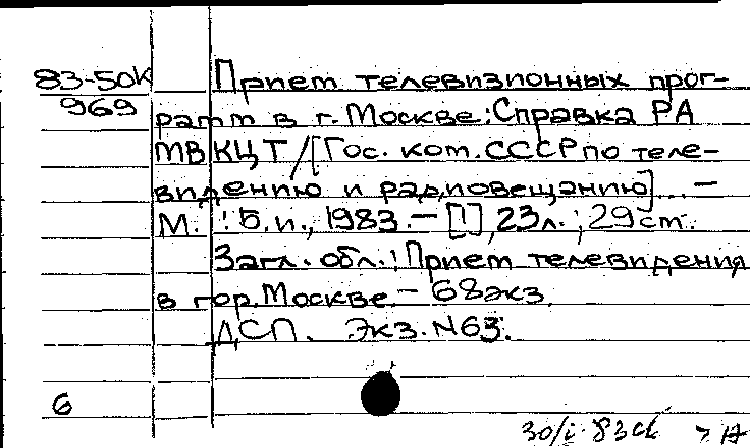 83-50К
969
Прием телевизионных прог-
рамм в г. Москве: Справка РА
МВ КЦТ / [Гос. ком. СССР по теле-
видению и радиовещанию]... -
М. : Б.и., 1983. - [1], 23л.; 29см.
Загл. обл.: Прием телевидения
в гор. Москве - 68экз.
ДСП. Экз. N63.
6
30/I-83